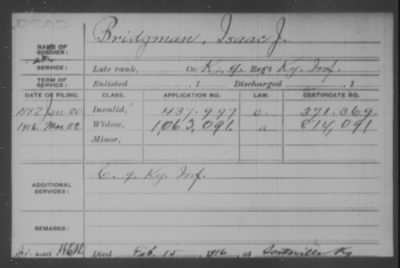 DEAD
NAME OF SOLDIER: Bridgman, Isaac J.
SERVICE: Late rank, Co. K, Reg't Ky. Inf.
TERM OF SERVICE: Enlisted , 1 Discharged , 1
DATE OF FILING. CLASS. APPLICATION NO. LAW. CERTIFICATE NO.
Invalid, 437.997 371.369.
1916. Mar. 22 Widow, 1,063,091. 814,091
Minor,
ADDITIONAL SERVICES: Ky. Inf.
REMARKS:
Died Feb. 15, 1916, at Scottsville Ky